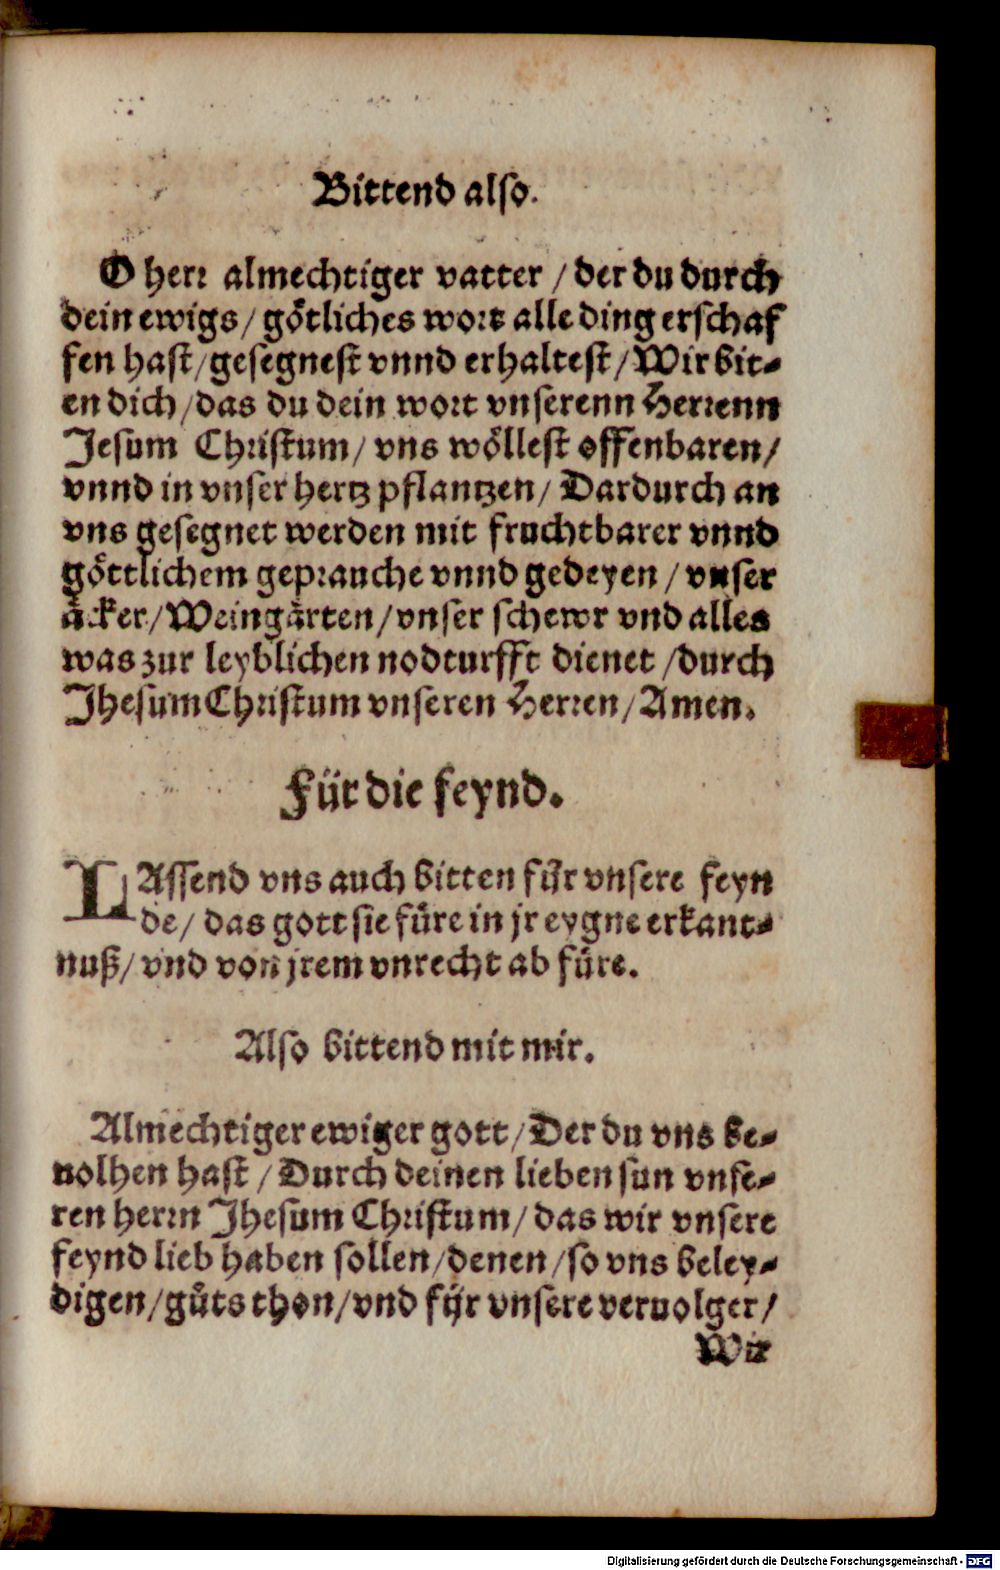 Bittend also.
O herr almechtiger vatter / der du durch
dein ewigs / götliches wort alle ding erschaf
fen hast / gesegnest vnnd erhaltest / Wir bit⸗
en dich / das du dein wort vnserenn Herrenn
Jesum Christum / vns wöllest offenbaren /
vnnd in vnser hertz pflantzen / Dardurch an
vns gesegnet werden mit fruchtbarer vnnd
göttlichem geprauche vnnd gedeyen / vnser
äcker / Weingärten / vnser schewr vnd alles
was zur leyblichen nodturfft dienet / durch
Jhesum Christum vnseren Herren / Amen.
Für die feynd.
LAssend vns auch bitten für vnsere feyn
de / das gott sie füre in jr eygne erkant⸗
nuß / vnd von jrem vnrecht ab füre.
Also bittend mit mir.
Almechtiger ewiger gott / Der du vns be⸗
uolhen hast / Durch deinen lieben sun vnse⸗
ren herrn Jhesum Christum / das wir vnsere
feynd lieb haben sollen / denen / so vns beley⸗
digen / gůts thon / vnd für vnsere veruolger /
Wir
Digitalisierung gefördert durch die Deutsche Forschungsgemeinschaft - DFG